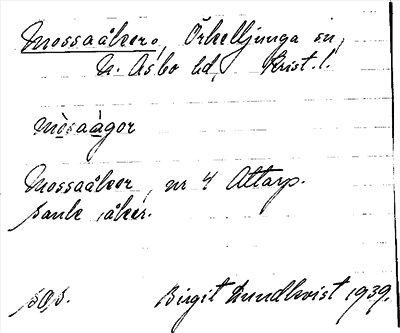 Mossaåker, Örkelljunga sn,
N. Åsbo hd, Krist. l.
mòsaàgor
Mossaåker, nr 4 Attarp.
sank åker.
Birgit Lundkvist 1939.